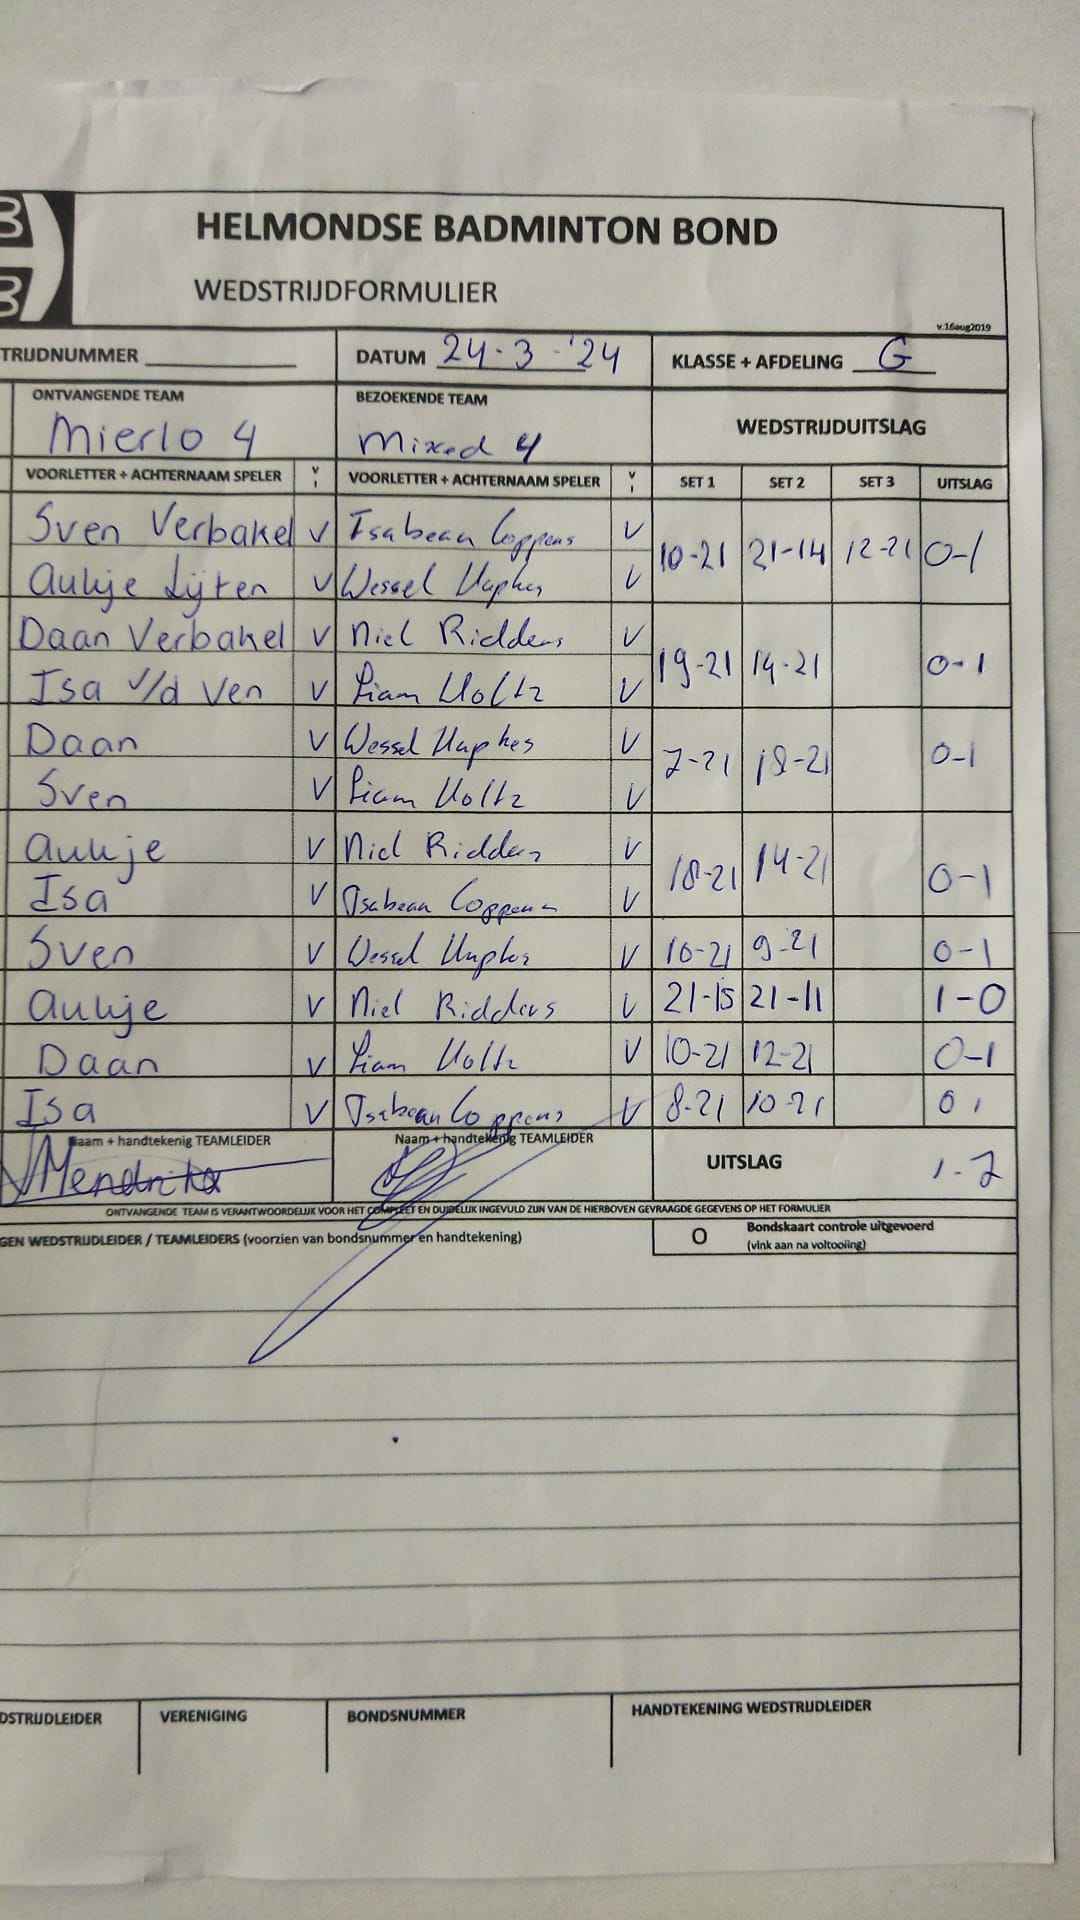 HELMONDSE BADMINTON BOND
WEDSTRIJDFORMULIER
v.16aug2019
TRIJDNUMMER DATUM 24-3-'24 KLASSE + AFDELING G
ONTVANGENDE TEAM BEZOEKENDE TEAM WEDSTRIJDUITSLAG
Mierlo 4 Mixed 4
VOORLETTER + ACHTERNAAM SPELER V VOORLETTER + ACHTERNAAM SPELER V SET 1 SET 2 SET 3 UITSLAG
Sven Verbakel V Isabeau Coppens V 10-21 21-14 12-21 0-1
Aukje Lijten V Wessel V
Daan Verbakel V Niel Ridders V 19-21 14-21 0-1
Isa v/d Ven V Liam Holtz V
Daan V Wessel V 7-21 18-21 0-1
Sven V Liam Holtz V
Aukje V Niel Ridders V 18-21 14-21 0-1
Isa V Isabeau Coppens V
Sven V Wessel V 10-21 9-21 0-1
Aukje V Niel Ridders V 21-15 21-11 1-0
Daan V Liam Holtz V 10-21 12-21 0-1
Isa V Isabeau Coppens V 8-21 10-21 0 1
Naam + handtekenig TEAMLEIDER Naam + handtekenig TEAMLEIDER UITSLAG 1-7
ONTVANGENDE TEAM IS VERANTWOORDELIJK VOOR HET COMPLEET EN DUIDELIJK INGEVULD ZIJN VAN DE HIERBOVEN GEVRAAGDE GEGEVENS OP HET FORMULIER
GEN WEDSTRIJDLEIDER / TEAMLEIDERS (voorzien van bondsnummer en handtekening) O Bondskaart controle uitgevoerd
(vink aan na voltooiing)
DSTRIJDLEIDER VERENIGING BONDSNUMMER HANDTEKENING WEDSTRIJDLEIDER